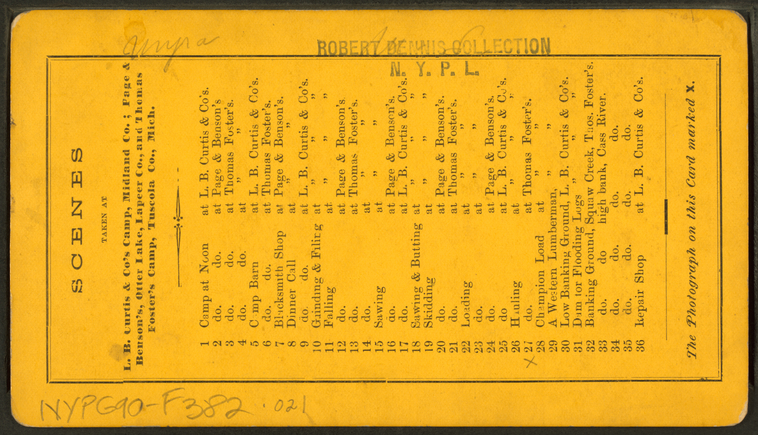 ROBERT DENNIS COLLECTION
N. Y. P. L.
SCENES
TAKEN AT
L. B. Curtis & Co's Camp, Midland Co.; Page &
Benson's, Otter Lake, Lapeer Co., and Thomas
Foster's Camp, Tuscola Co., Mich.
1 Camp at Noon at L. B. Curtis & Co's.
2 do. do. at Page & Benson's
3 do. do. at Thomas Foster's.
4 do. do. at „ „
5 Camp Barn at L. B. Curtis & Co's.
6 do. do. at Thomas Foster's.
7 Blacksmith Shop at Page & Benson's.
8 Dinner Call at „ „
9 do. do. at L. B. Curtis & Co's.
10 Grinding & Filing at „ „
11 Falling at „ „
12 do. at Page & Benson's
13 do. at Thomas Foster's.
14 do. at „ „
15 Sawing at „ „
16 do. at Page & Benson's.
17 do. at L. B. Curtis & Co's.
18 Sawing & Butting at „ „
19 Skidding at „ „
20 do. at Page & Benson's.
21 do. at Thomas Foster's.
22 Loading at „ „
23 do. at „ „
24 do. at Page & Benson's.
25 do at L. B. Curtis & Co's.
26 Hauling at „ „
27 do. at Thomas Foster's.
28 Champion Load at „ „
29 A Western Lumberman,
30 Low Banking Ground, L. B. Curtis & Co's.
31 Dam for Flooding Logs „ „
32 Banking Ground, Squaw Creek, Thos. Foster's.
33 do. do high bank, Cass River.
34 do. do. do. do.
35 do. do. do. do.
36 Repair Shop at L. B. Curtis & Co's.
The Photograph on this Card marked X.
NYPG90-F382 .021